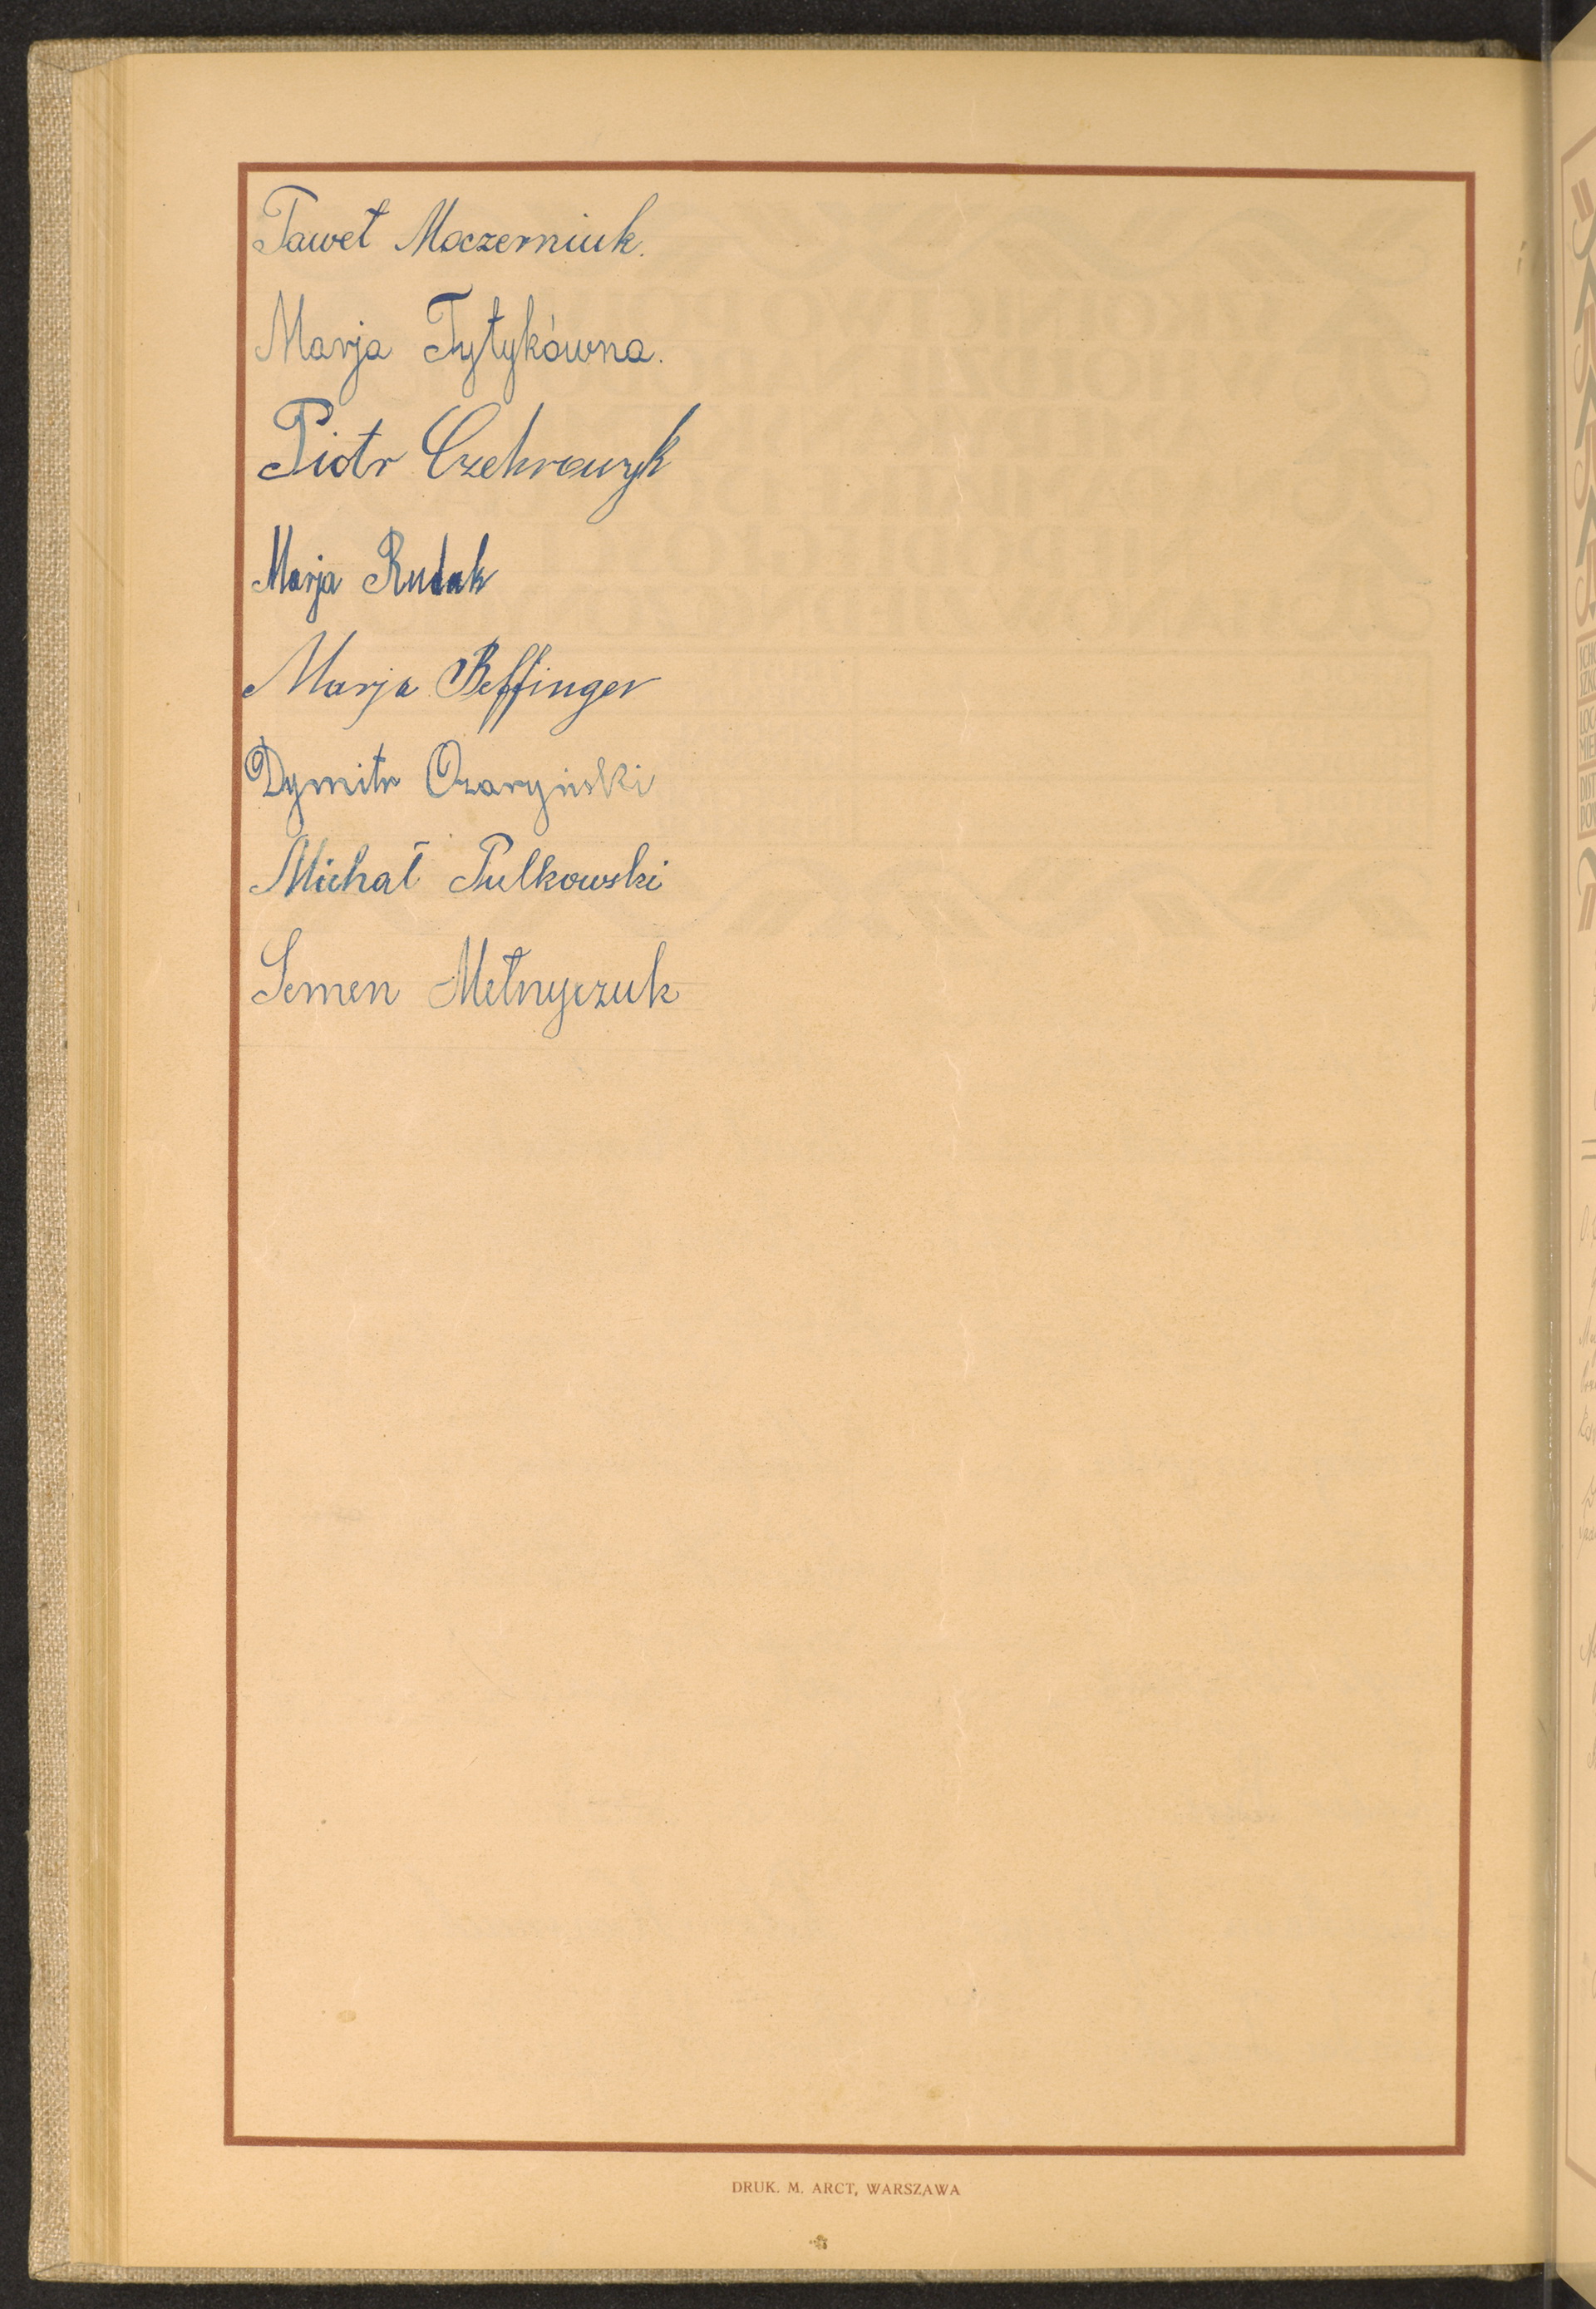 Paweł Moczerniuk.
Marja Tytykówna.
Piotr Czekrowzyk
Marja Rudak
Marja Beffinger
Dymitr Ozaryński
Michał Pulkowski
Semen Mełnyczuk
DRUK. M. ARCT, WARSZAWA